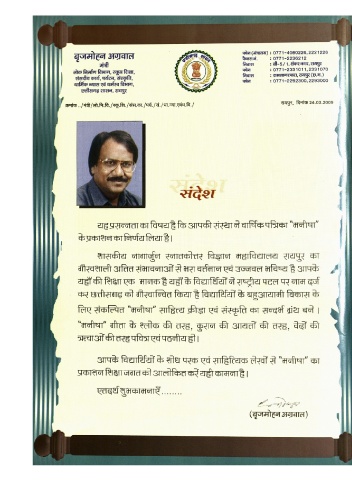 बृजमोहन अग्रवाल
मंत्री
लोक निर्माण विभाग, स्कूल शिक्षा,
संसदीय कार्य, पर्यटन, संस्कृति,
धार्मिक न्यास एवं धर्मस्व विभाग,
छत्तीसगढ़ शासन, रायपुर
फोन (मंत्रालय) : 0771-4080226, 2221226
: 0771-2236212
निवास
निवास
फोन : 0771-2292300, 2293000
रायपुर, दिनांक 24.03.2009
संदेश
यह प्रसन्नता का विषय है कि आपकी संस्था ने वार्षिक पत्रिका "मनीषा"
के प्रकाशन का निर्णय लिया है।
शासकीय नागार्जुन स्नातकोत्तर विज्ञान महाविद्यालय रायपुर का
गौरवशाली अतित संभावनाओं से भरा वर्तमान एवं उज्जवल भविष्य है आपके
यहाँ की शिक्षा एक मानक है यहाँ के विद्यार्थियों ने राष्ट्रीय पटल पर नाम दर्ज
कर छत्तीसगढ़ को गौरवान्वित किया है विद्यार्थियों के बहुआयामी विकास के
लिए संकल्पित "मनीषा" साहित्य क्रीड़ा एवं संस्कृति का सन्दर्भ ग्रंथ बनें ।
"मनीषा" गीता के श्लोक की तरह, कुरान की आयतों की तरह, वेदों की
ऋचाओं की तरह पवित्र एवं पठनीय हो ।
आपके विद्यार्थियों के शोध परक एवं साहित्यिक लेखों से "मनीषा" का
प्रकाशन शिक्षा जगत को आलोकित करें यही कामना है।
एतदर्थ शुभकामनाएँ ........
(बृजमोहन अग्रवाल)